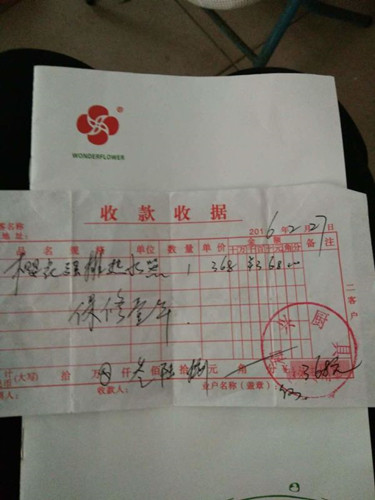 ®
WONDERFLOWER
收款收据
2016年2月27日
客名称
地址:
品名规格 单位 数量 单价 金额 备注
樱花强排热水器 1 368 ¥368.00
保修壹年
二客户
计(大写) 拾 万 仟 叁佰陆拾捌元 角 分 ¥368元
收款人: 业户名称(盖章):